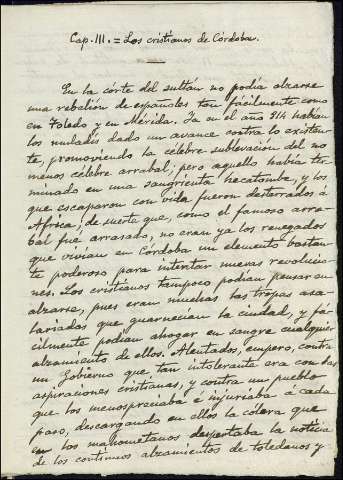 Cap. III. = Los cristianos de Córdoba.
En la córte del sultán no podía alzarse
una rebelión de españoles tan fácilmente como
en Toledo y en Mérida. Ya en el año 814 habían
los muladís dado un avance contra lo existen-
te, promoviendo la célebre sublevación del no
menos célebre arrabal; pero aquello había ter-
minado en una sangrienta hecatombe, y los
que escaparon con vida fueron desterrados á
África; de suerte que, como el famoso arra-
bal fué arrasado, no eran ya los renegados
que vivían en Córdoba un elemento bastan-
te poderoso para intentar nuevas revolucio-
nes. Los cristianos tampoco podían pensar en
alzarse, pues eran muchas las tropas asa-
lariadas que guarnecían la ciudad, y fá-
cilmente podían ahogar en sangre cualquier
alzamiento de ellos. Alentados, empero, contra
un Gobierno que tan intolerante era con las
aspiraciones cristianas, y contra un pueblo
que los menospreciaba é injuriaba á cada
paso, descargando en ellos la cólera que
en los mahometanos despertaba la noticia
de los continuos alzamientos de toledanos y